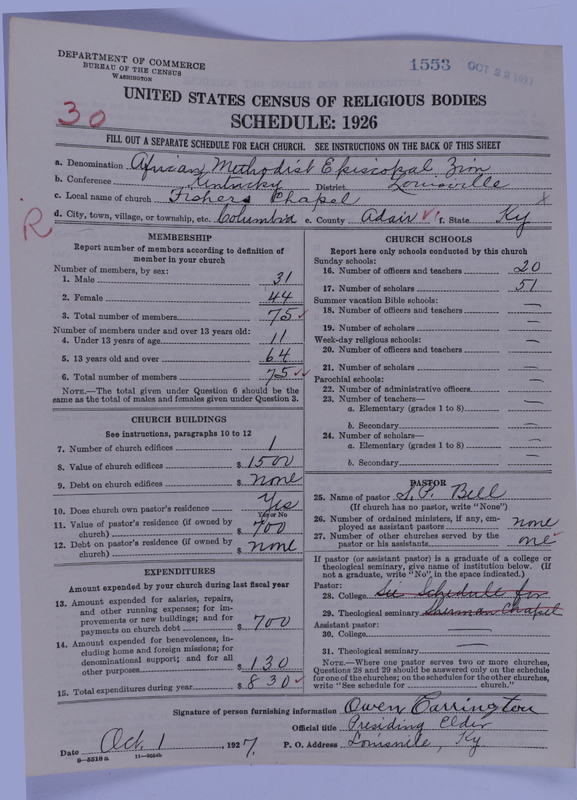 DEPARTMENT OF COMMERCE
BUREAU OF THE CENSUS
WASHINGTON
1553 OCT 22 1927
UNITED STATES CENSUS OF RELIGIOUS BODIES
SCHEDULE: 1926
30
FILL OUT A SEPARATE SCHEDULE FOR EACH CHURCH. SEE INSTRUCTIONS ON THE BACK OF THIS SHEET
a. Denomination African Methodist Episcopal Zion
b. Conference Kentucky District Louisville
c. Local name of church Fishers Chapel x
d. City, town, village, or township, etc. Columbia e. County Adair ✓ f. State Ky
R
MEMBERSHIP
Report number of members according to definition of
member in your church
Number of members, by sex:
1. Male 31
2. Female 44
3. Total number of members 75 ✓
Number of members under and over 13 years old:
4. Under 13 years of age 11
5. 13 years old and over 64
6. Total number of members 75 ✓
NOTE.—The total given under Question 6 should be the
same as the total of males and females given under Question 3.
CHURCH BUILDINGS
See instructions, paragraphs 10 to 12
7. Number of church edifices 1
8. Value of church edifices $ 1500
9. Debt on church edifices $ none
10. Does church own pastor's residence Yes
Yes or No
11. Value of pastor's residence (if owned by
church) $ 700
12. Debt on pastor's residence (if owned by
church) $ none
EXPENDITURES
Amount expended by your church during last fiscal year
13. Amount expended for salaries, repairs,
and other running expenses; for im-
provements or new buildings; and for
payments on church debt $ 700
14. Amount expended for benevolences, in-
cluding home and foreign missions; for
denominational support; and for all
other purposes $ 130
15. Total expenditures during year $ 830 ✓
CHURCH SCHOOLS
Report here only schools conducted by this church
Sunday schools:
16. Number of officers and teachers 20
17. Number of scholars 51
Summer vacation Bible schools:
18. Number of officers and teachers —
19. Number of scholars —
Week-day religious schools:
20. Number of officers and teachers —
21. Number of scholars —
Parochial schools:
22. Number of administrative officers —
23. Number of teachers—
a. Elementary (grades 1 to 8) —
b. Secondary —
24. Number of scholars—
a. Elementary (grades 1 to 8) —
b. Secondary —
PASTOR
25. Name of pastor S. P. Bell
(If church has no pastor, write "None")
26. Number of ordained ministers, if any, em-
ployed as assistant pastors none
27. Number of other churches served by the
pastor or his assistants one ✓
If pastor (or assistant pastor) is a graduate of a college or
theological seminary, give name of institution below. (If
not a graduate, write "No" in the space indicated.)
Pastor:
28. College See Schedule for
29. Theological seminary Chapel
Assistant pastor:
30. College —
31. Theological seminary —
NOTE.—Where one pastor serves two or more churches,
Questions 28 and 29 should be answered only on the schedule
for one of the churches; on the schedules for the other churches,
write "See schedule for church."
Signature of person furnishing information Owen Carrington
Official title Presiding Elder
Date Oct. 1, 1927. P. O. Address Louisville, Ky
8—5518a